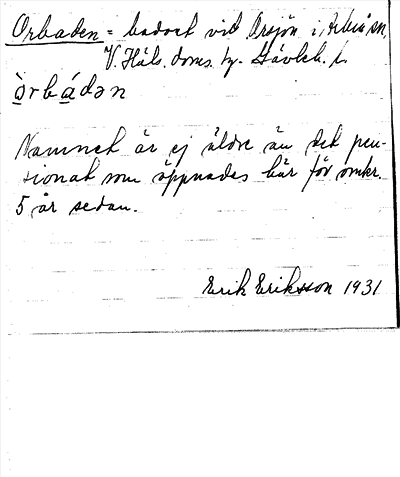 Orbaden = badort vid Orsjön i Arbrå sn,
V. Häls. doms. hg. Gävleb. l.
òrbádən
Namnet är ej äldre än det pen-
sionat som öppnades här för omkr.
5 år sedan.
Erik Eriksson 1931